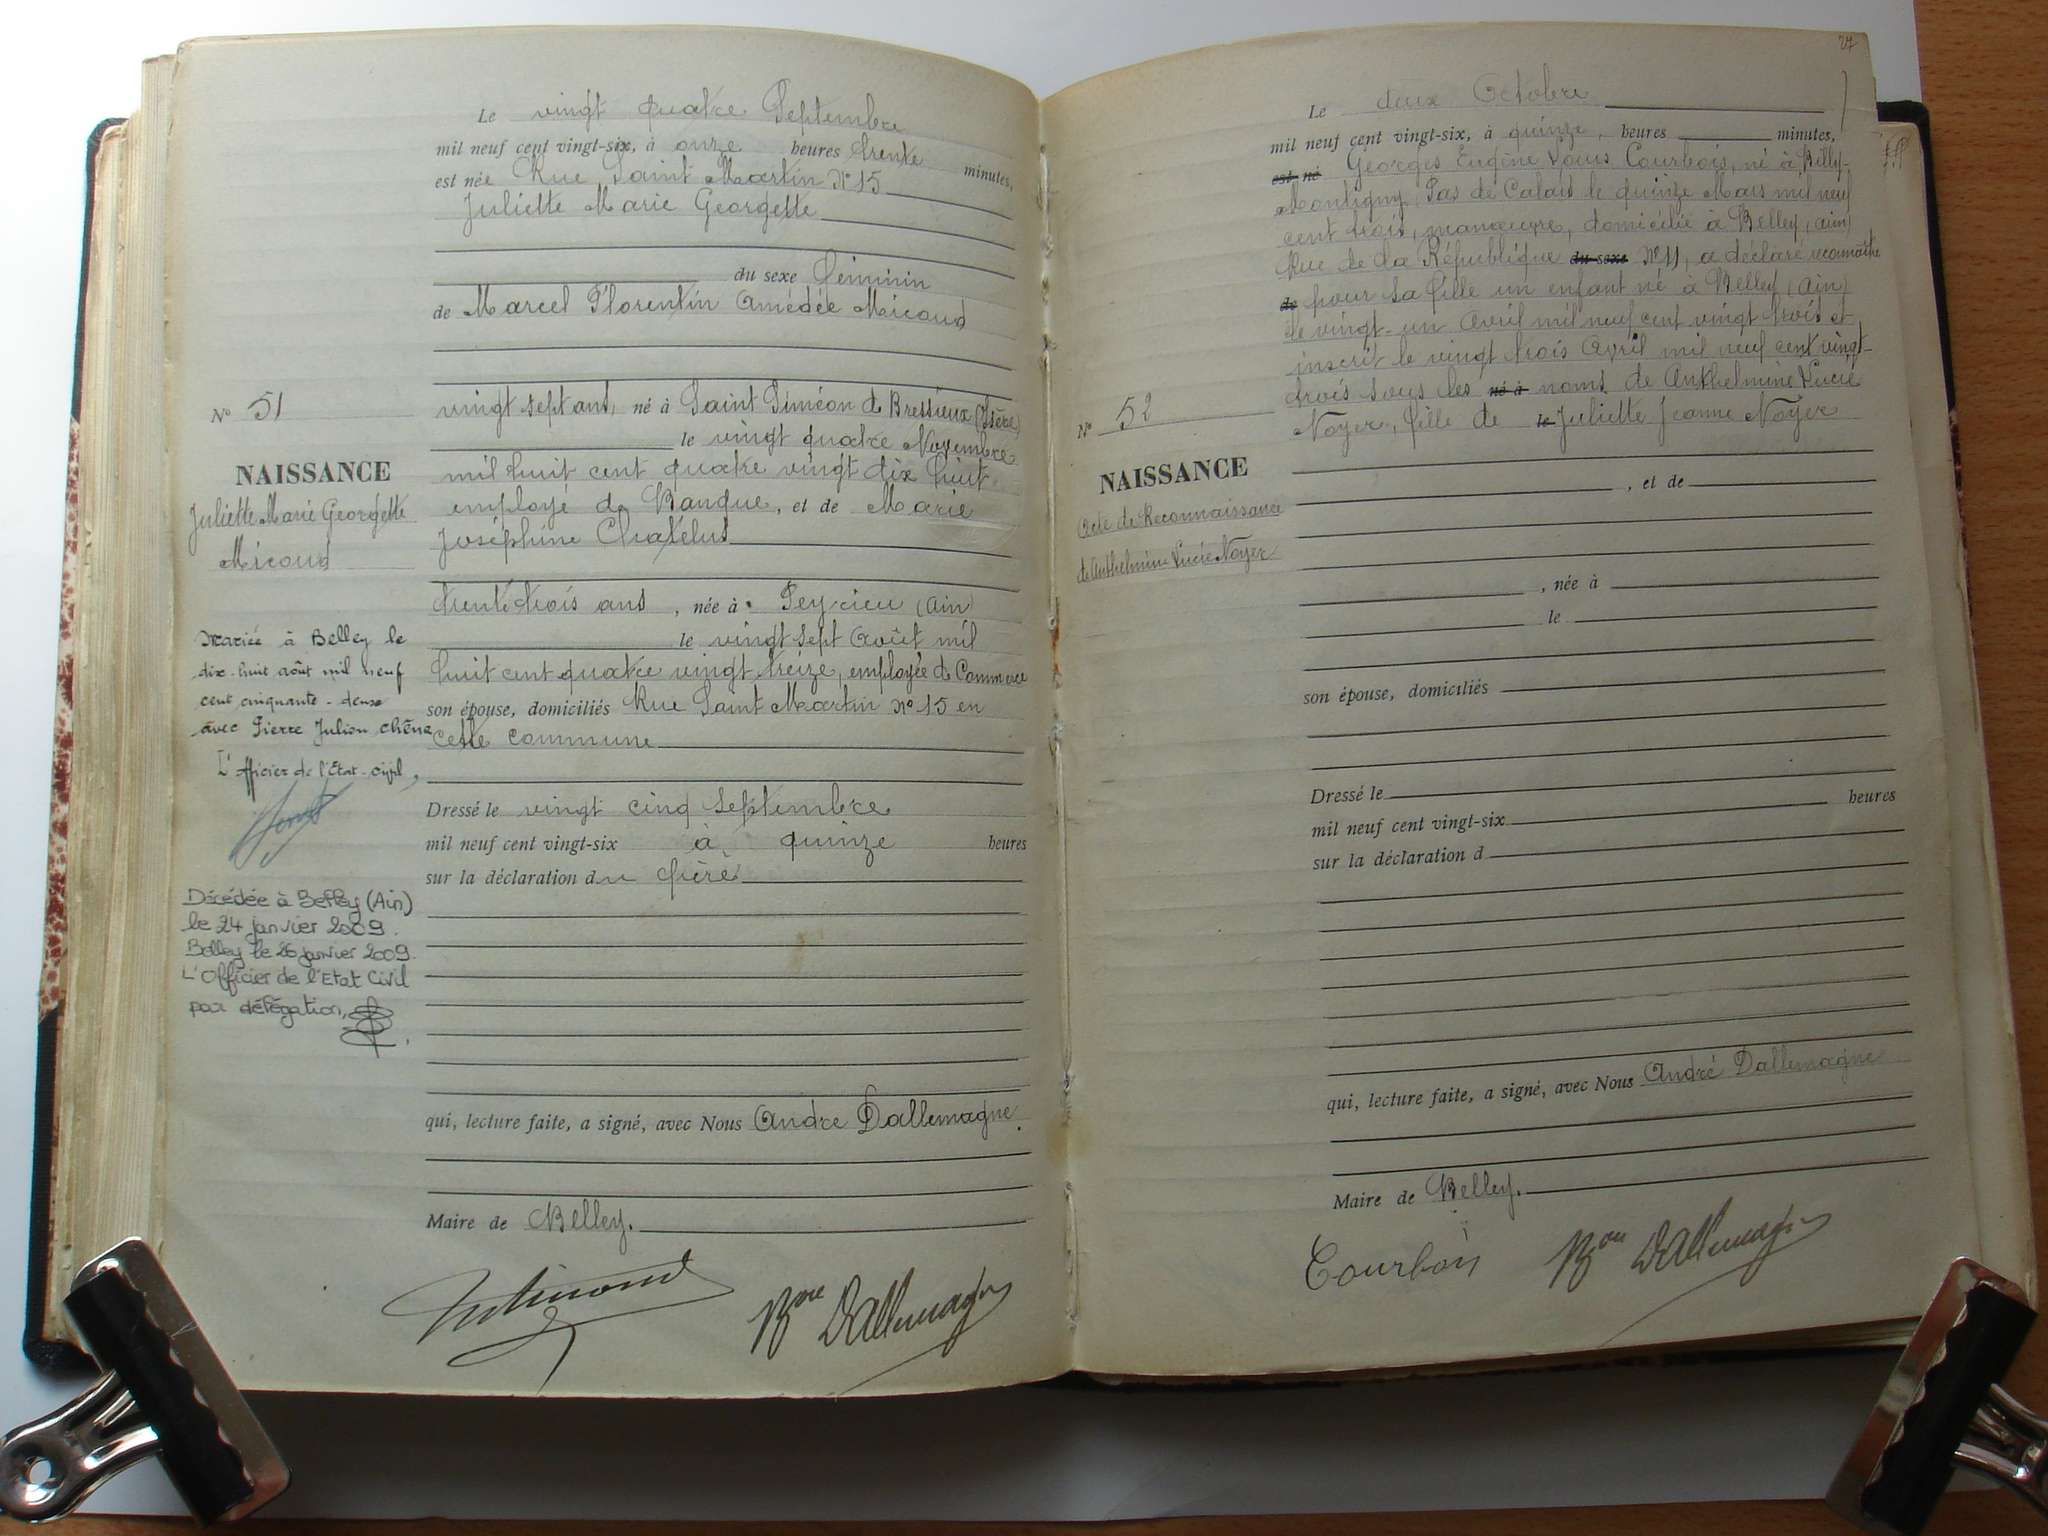 Le vingt quatre Septembre
mil neuf cent vingt-six, à onze heures trente minutes,
est née Rue Saint Martin N° 15
Juliette Marie Georgette
du sexe féminin
de Marcel Florentin Amédée Micoud
vingt sept ans, né à Saint Siméon de Bressieux (Isère)
le vingt quatre Novembre
mil huit cent quatre vingt dix huit
employé de Banque, et de Marie
Joséphine Chatelut
trente trois ans, née à Peyrieu (Ain)
le vingt sept Août mil
huit cent quatre vingt treize, employée de Commerce
son épouse, domiciliés Rue Saint Martin N° 15 en
cette commune
Dressé le vingt cinq septembre
mil neuf cent vingt-six à quinze heures
sur la déclaration du père
qui, lecture faite, a signé, avec Nous André Dallemagne.
Maire de Belley.
Bon Dallemagne
N° 51
NAISSANCE
Juliette Marie Georgette
Micoud
Mariée à Belley le
dix-huit août mil neuf
cent cinquante-deux
avec Pierre Julien Chêne
L'officier de l'Etat-civil,
Décédée à Belley (Ain)
le 24 janvier 2009.
Belley le 26 janvier 2009.
L'Officier de l'Etat Civil
par délégation,
27
Le deux Octobre
mil neuf cent vingt-six, à quinze, heures minutes,
est né Georges Eugène Louis Courbois, né à Billy-
Montigny, Pas de Calais le quinze Mars mil neuf
cent trois, manœuvre, domicilié à Belley, (Ain)
Rue de la République du sexe N° 11, a déclaré reconnaître
de pour sa fille un enfant né à Belley (Ain)
le vingt-un Avril mil neuf cent vingt trois et
inscrit le vingt trois Avril mil neuf cent vingt-
trois sous les né à noms de Anthelmine Lucie
Noyer, fille de le Juliette Jeanne Noyer
, et de
, née à
le
son épouse, domiciliés
Dressé le
mil neuf cent vingt-six heures
sur la déclaration d
qui, lecture faite, a signé, avec Nous André Dallemagne
Maire de Belley.
Courbois Bon Dallemagne
N° 52
NAISSANCE
Acte de Reconnaissance
de Anthelmine Lucie Noyer